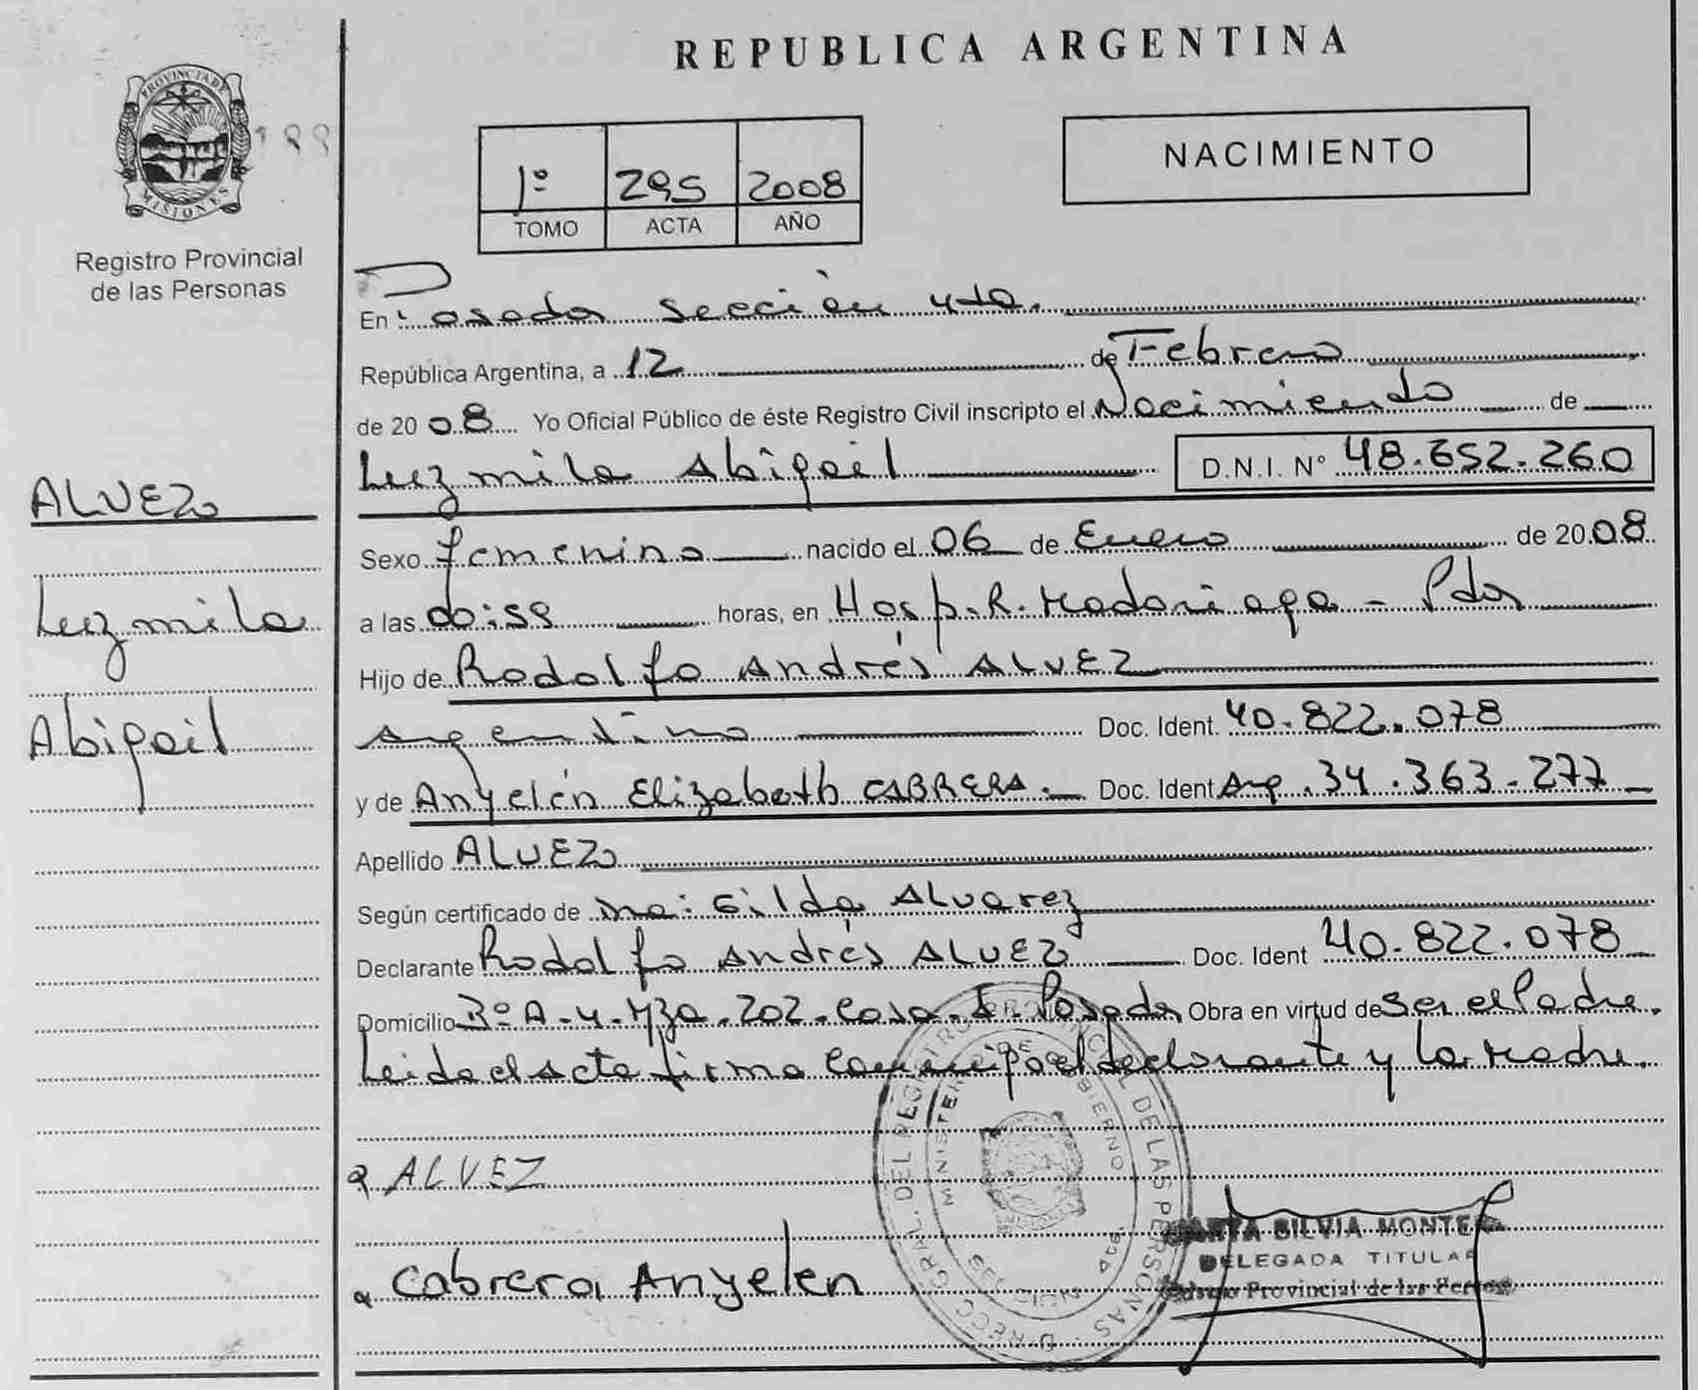 REPUBLICA ARGENTINA
PROVINCIA DE
MISIONES
Registro Provincial
de las Personas
1º 295 2008
TOMO ACTA AÑO
NACIMIENTO
En Posadas sección 4ta.
República Argentina, a 12 de Febrero
de 2008 Yo Oficial Público de éste Registro Civil inscripto el Nacimiento de
Luzmila Abigail D.N.I. Nº 48.652.260
ALVEZ
Sexo femenino nacido el 06 de Enero de 2008
Luzmila
a las 00:59 horas, en Hosp. R. Madariaga - Pdas
Hijo de Rodolfo Andrés ALVEZ
Abigail
Argentino Doc. Ident. 40.822.078
y de Anyelén Elizabeth CABRERA.- Doc. Ident Arg. 34.363.277
Apellido ALVEZ
Según certificado de Gilda Alvarez
Declarante Rodolfo Andrés ALVEZ Doc. Ident 40.822.078
Domicilio Bº A-4-Mza.202-Casa Posadas Obra en virtud de Ser el Padre.
Leida el Acta firma conmigo el declarante y la Madre.
ALVEZ
Cabrera Anyelen
DIRECC. GRAL. DEL REGISTRO PROVINCIAL DE LAS PERSONAS
MINISTERIO DE GOBIERNO
MISIONES
MARTA SILVIA MONTE
DELEGADA TITULAR
Registro Provincial de las Personas